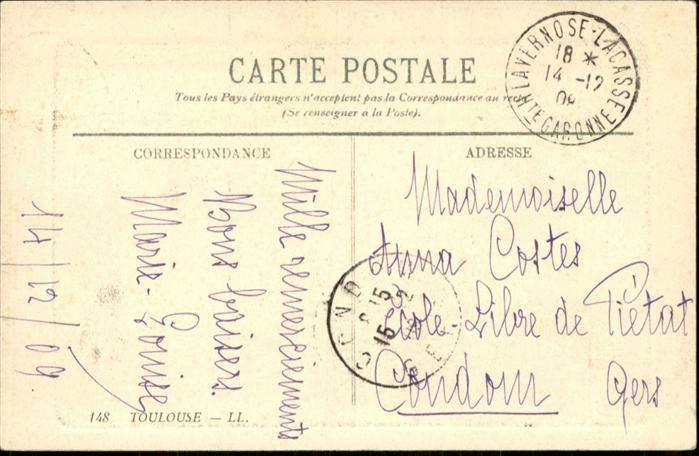 CARTE POSTALE
Tous les Pays étrangers n'acceptent pas la Correspondance au rec
(Se renseigner a la Poste).
LAVERNOSE-LACASSE
18 *
14 -12
09
HTE GARONNE
CORRESPONDANCE
ADRESSE
Mille remerciements
Bons baisers.
Marie-Louise
14/12/09
Mademoiselle
Anna Costes
école Libre de Piétat
Condom Gers
COND
15
148 TOULOUSE — LL.